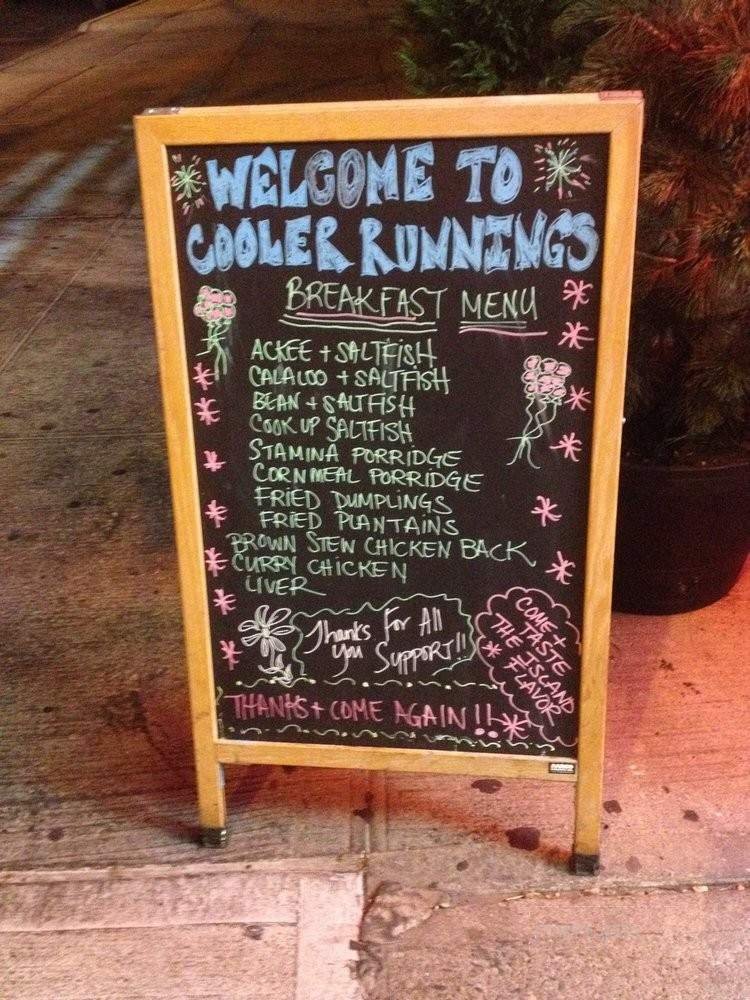 WELCOME TO
COOLER RUNNINGS
BREAKFAST MENU
ACKEE + SALTFISH
CALALOO + SALTFISH
BEAN + SALTFISH
COOK UP SALTFISH
STAMINA PORRIDGE
CORNMEAL PORRIDGE
FRIED DUMPLINGS
FRIED PLANTAINS
BROWN STEW CHICKEN BACK
CURRY CHICKEN
LIVER
Thanks For All
you SUPPORT!!
COME +
TASTE
THE ISLAND
FLAVOR
THANKS + COME AGAIN!!